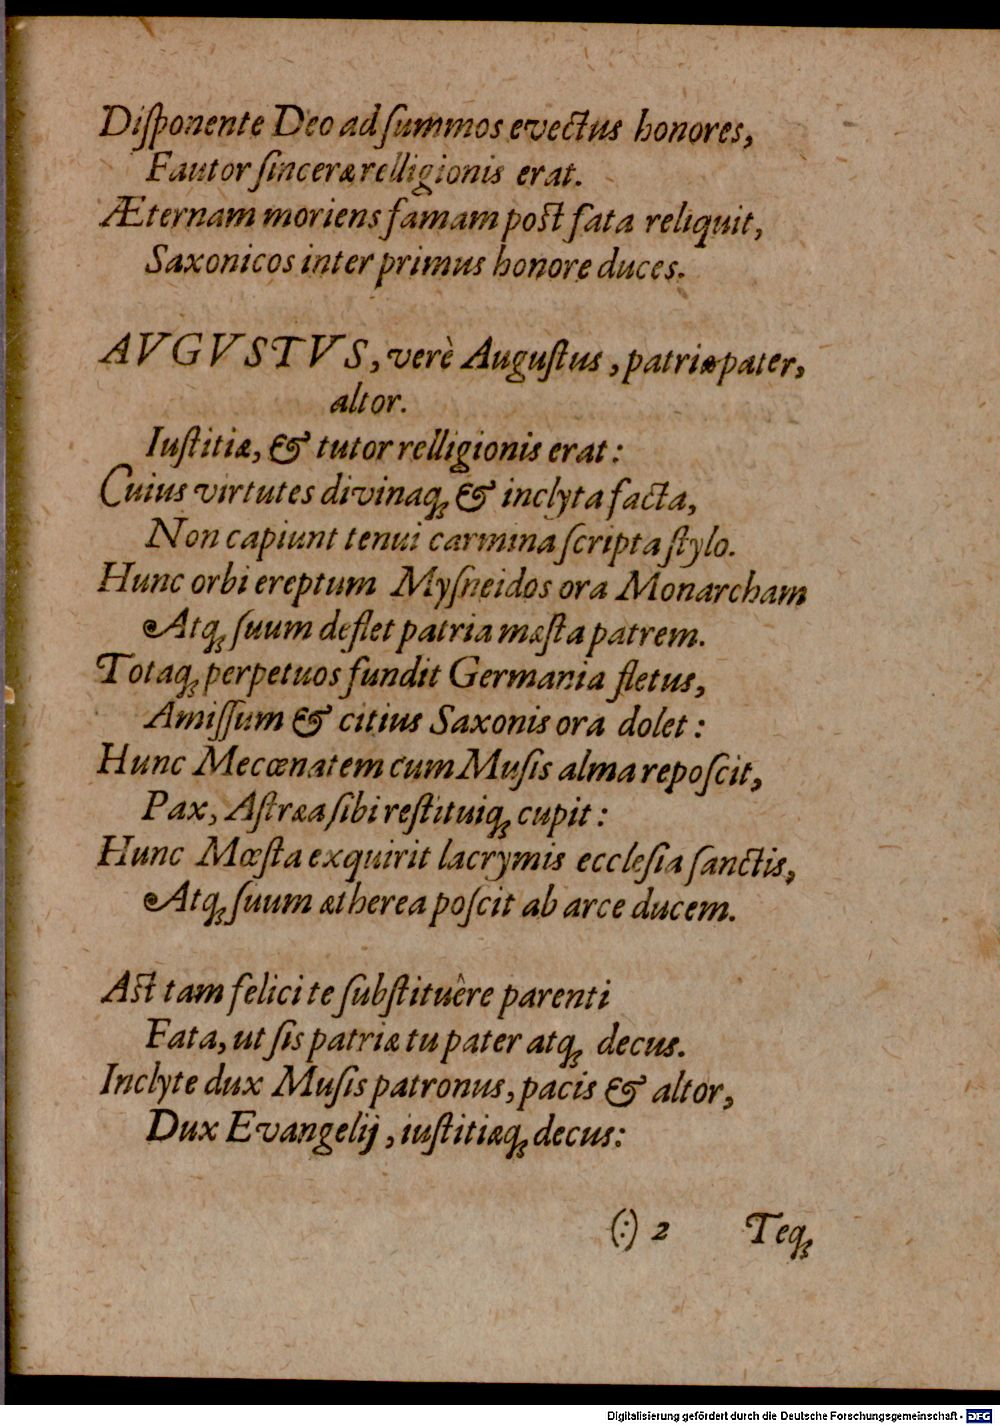 Diſponente Deo ad ſummos evectus honores,
Fautor ſinceræ relligionis erat.
Æternam moriens famam poſt fata reliquit,
Saxonicos inter primus honore duces.
AVGVSTVS, verè Auguſtus, patriæ pater,
altor.
Iuſtitiæ, & tutor relligionis erat:
Cuius virtutes divinaq́; & inclyta facta,
Non capiunt tenui carmina ſcripta ſtylo.
Hunc orbi ereptum Myſneidos ora Monarcham
Atq; ſuum deflet patria mæſta patrem.
Totaq; perpetuos fundit Germania fletus,
Amiſſum & citius Saxonis ora dolet:
Hunc Mecœnatem cum Muſis alma repoſcit,
Pax, Aſtræa ſibi reſtituiq; cupit:
Hunc Mœſta exquirit lacrymis eccleſia ſanctis,
Atq; ſuum ætherea poſcit ab arce ducem.
Aſt tam felici te ſubſtituêre parenti
Fata, ut ſis patriæ tu pater atq; decus.
Inclyte dux Muſis patronus, pacis & altor,
Dux Evangelij, iuſtitiæq; decus:
(:) 2 Teq;
Digitalisierung gefördert durch die Deutsche Forschungsgemeinschaft - DFG